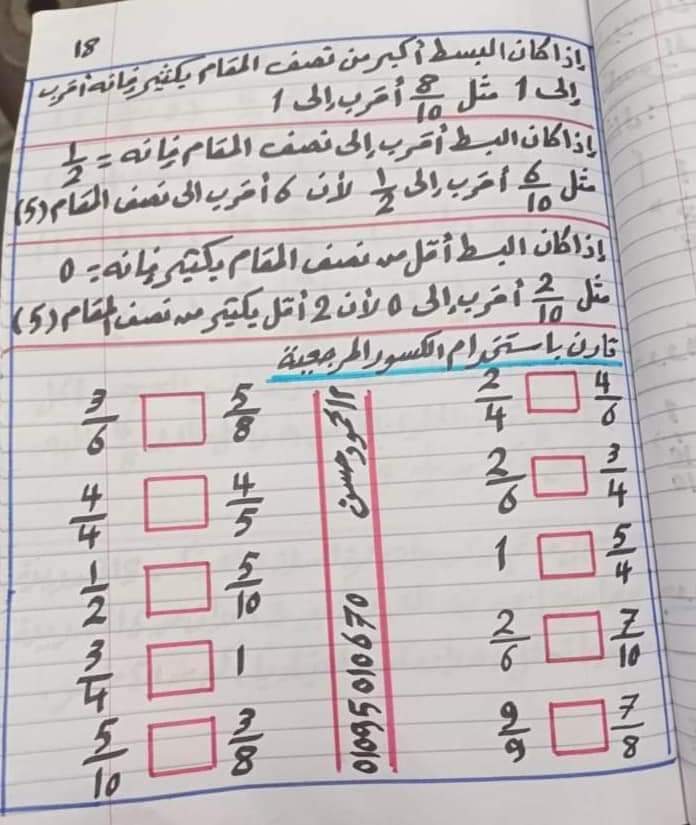 18
إذا كان البسط أكبر من نصف المقام بكثير فإنه أقرب
إلى 1 مثل 8/10 أقرب إلى 1
إذا كان البسط أقرب إلى نصف المقام فإنه = 1/2
مثل 6/10 أقرب إلى 1/2 لأن 6 أقرب إلى نصف المقام (5)
إذا كان البسط أقل من نصف المقام بكثير فإنه = 0
مثل 2/10 أقرب إلى 0 لأن 2 أقل بكثير من نصف المقام (5)
قارن باستخدام الكسور المرجعية
4/6 □ 2/4
3/4 □ 2/6
5/4 □ 1
7/10 □ 2/6
7/8 □ 9/9
محمود حسن
01095010670
5/8 □ 3/6
4/5 □ 4/4
5/10 □ 1/2
1 □ 3/4
3/8 □ 5/10